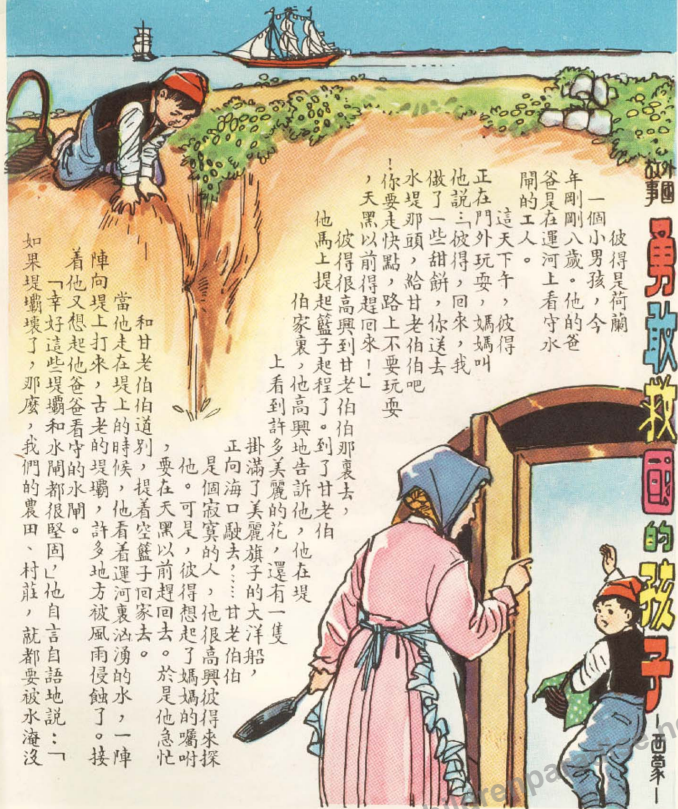 外國
故事
勇敢救國的孩子
—西蒙—
彼得是荷蘭
一個小男孩,今
年剛剛八歲。他的爸
爸是在運河上看守水
閘的工人。
這天下午,彼得
正在門外玩耍,媽媽叫
他說:「彼得,回來,我
做了一些甜餅,你送去
水堤那頭,給甘老伯伯吧
!你要走快點,路上不要玩耍
,天黑以前得趕回來!」
彼得很高興到甘老伯伯那裏去,
他馬上提起籃子起程了。到了甘老伯
伯家裏,他高興地告訴他,他在堤
上看到許多美麗的花,還有一隻
掛滿了美麗旗子的大洋船,
正向海口駛去,……甘老伯伯
是個寂寞的人,他很高興彼得來探
他。可是,彼得想起了媽媽的囑咐
,要在天黑以前趕回去。於是他急忙
和甘老伯伯道別,提着空籃子回家去。
當他走在堤上的時候,他看着運河裏洶湧的水,一陣
陣向堤上打來,古老的堤壩,許多地方被風雨侵蝕了。接
着他又想起他爸爸看守的水閘。
「幸好這些堤壩和水閘都很堅固,」他自言自語地說:「
如果堤壩壞了,那麼,我們的農田、村莊,就都要被水淹沒